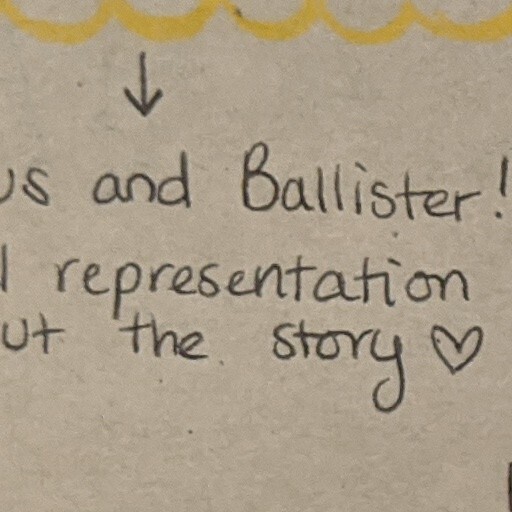 us and Ballister!
l representation
ut the story ♡